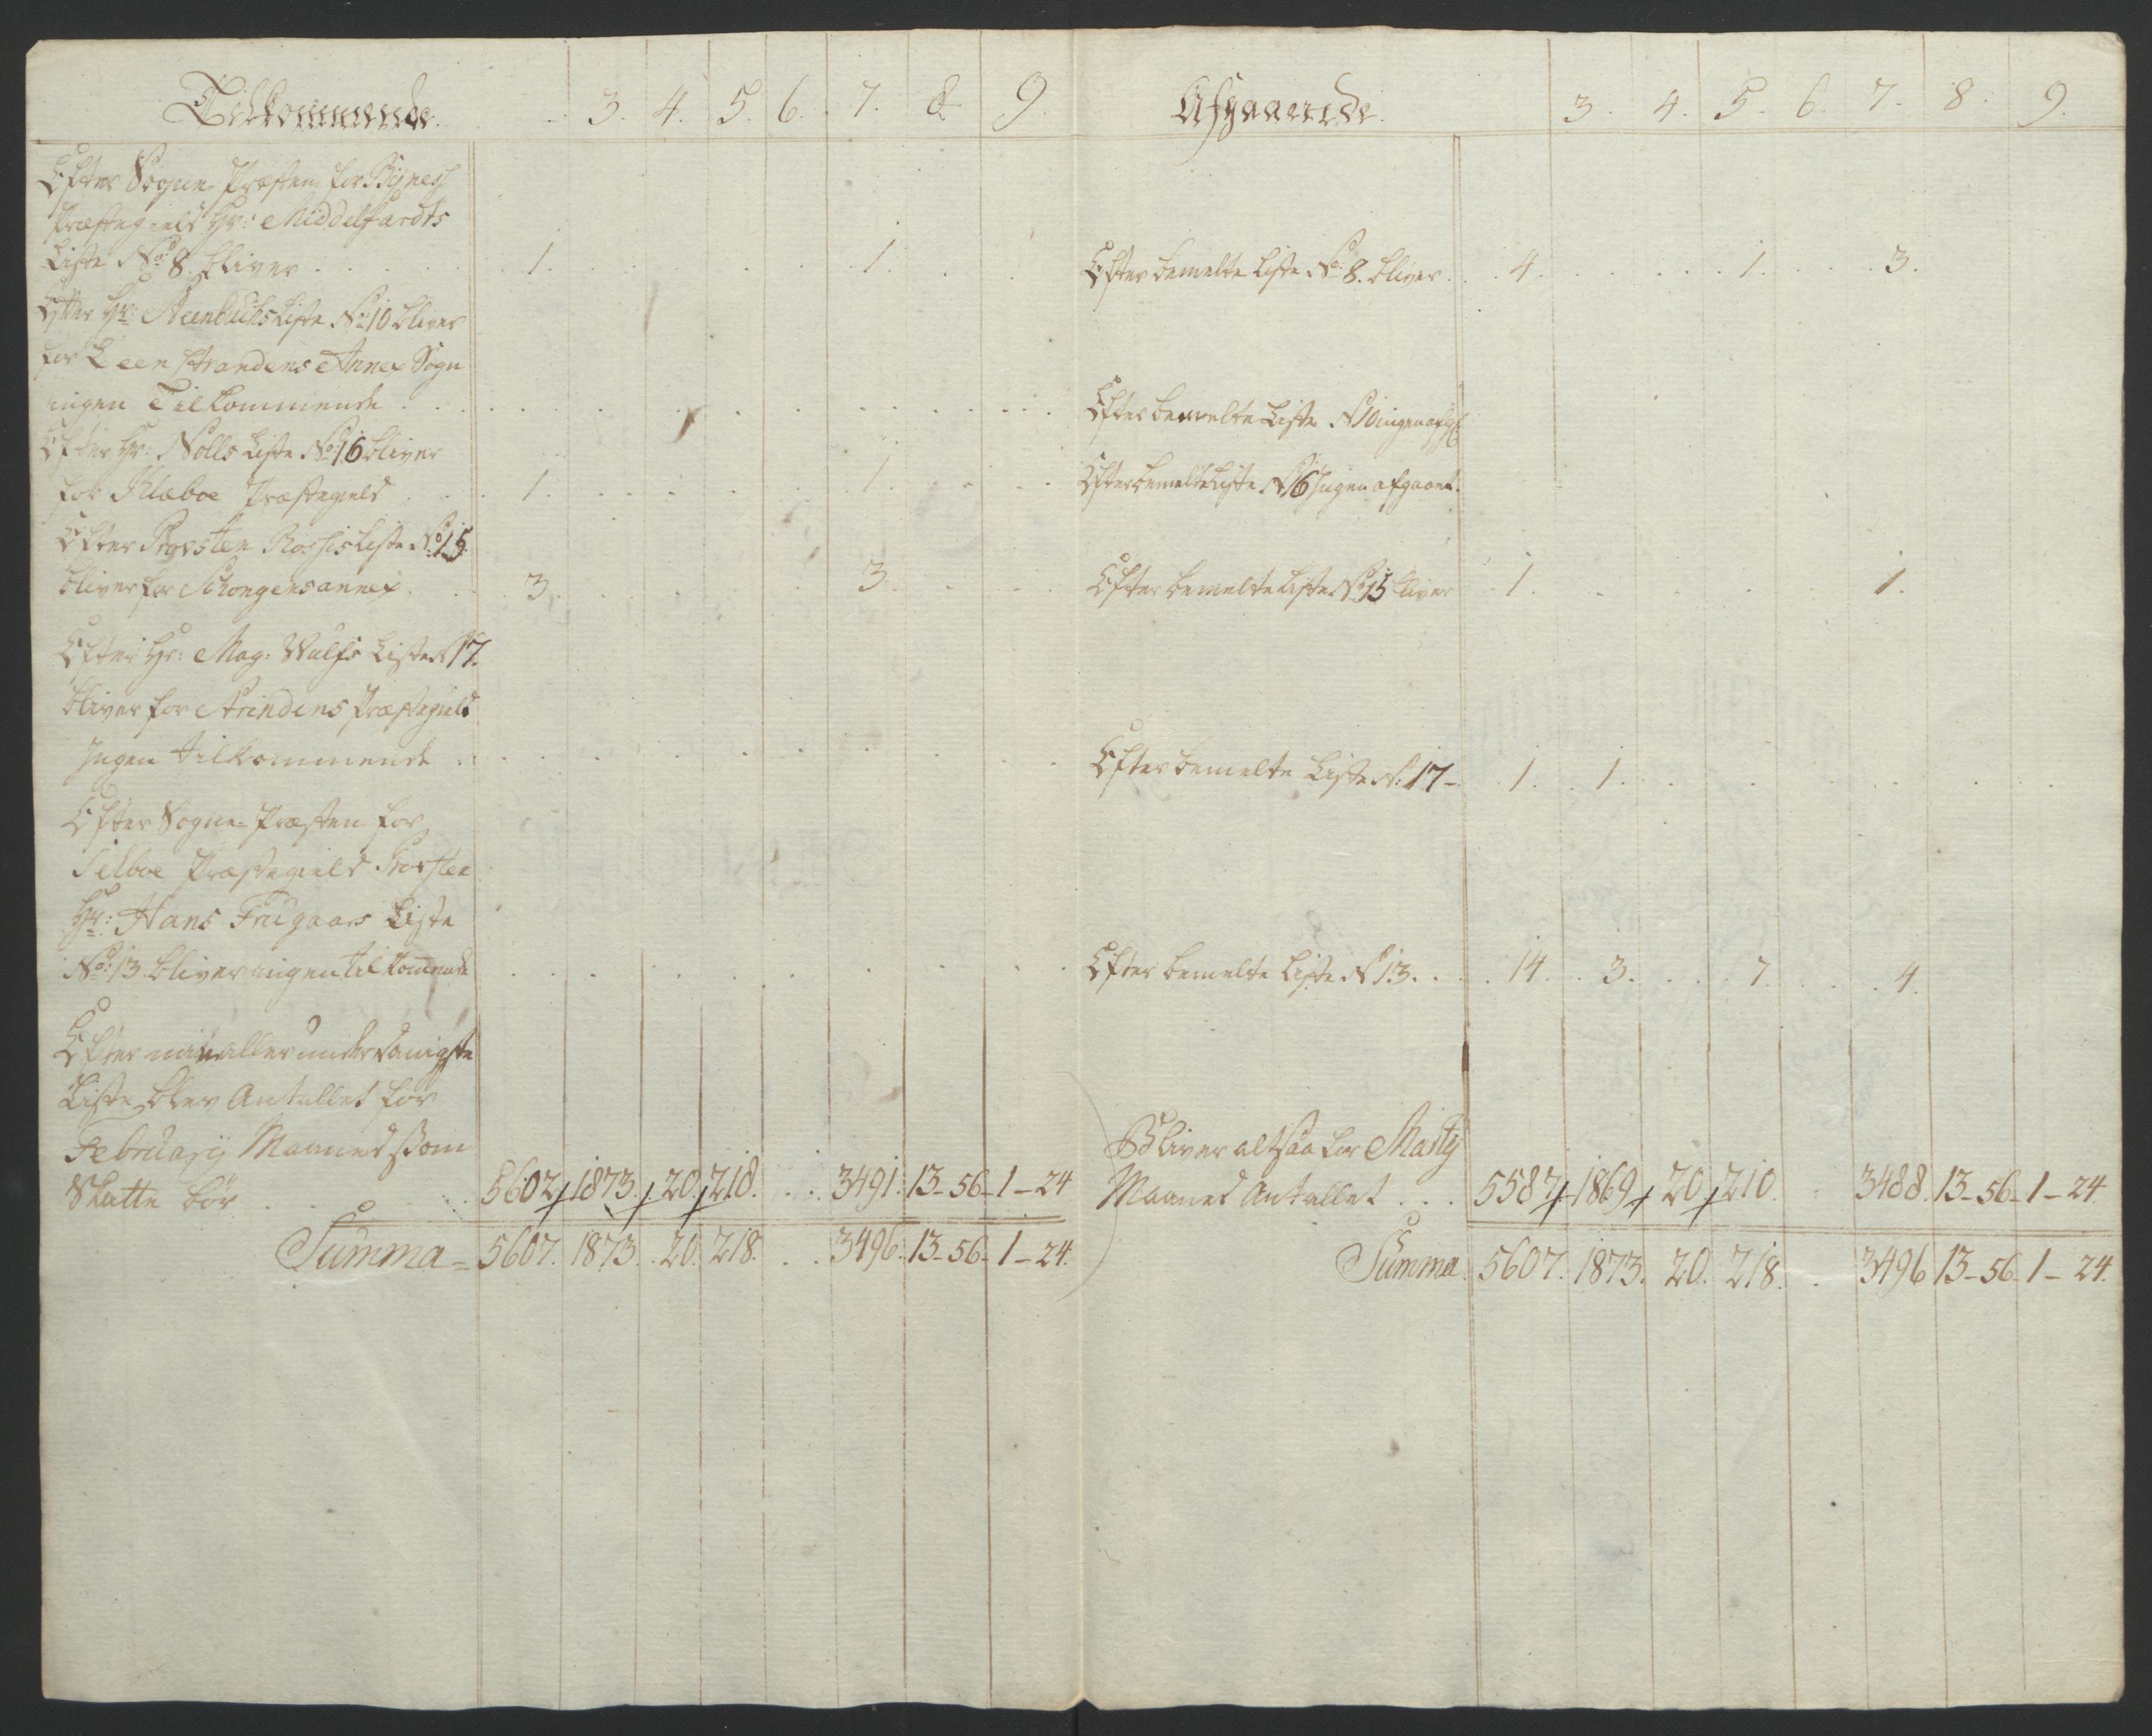 Tilkommende. 3. 4. 5. 6. 7. 8 9.
Efter Sogne-Præsten for Bynes
Præstegield Hr: Middelfardts
Liste No: 8. bliver . . . 1. . . . 1.
Efter Hr: Steenbuchs Liste No: 10 bliver
for Leenstrandens Annex Sogn
ingen Tilkommende . . .
Efter Hr: Nolls Liste No: 16 bliver
for Klæboe Præstegield . . . 1. . . . 1.
Efter Provsten Liste No: 15.
bliver for annex . . . 3. . . . 3.
Efter Hr: Mag: Wulfs Liste N 17.
bliver for Strindens Præstegield
Ingen tilkommende . . .
Efter Sogne-Præsten for
Selboe Præstegield Provsten
Hr: Hans Liste
No: 13. bliver ingen tilkommende
Efter min allerunderdanigste
Liste blev Antallet for
February Maaned som
Skatte bør . . . 5602 1873. 20. 218. . . 3491. 13-56-1-24
Summa = 5607. 1873. 20. 218. . . 3496. 13-56-1-24.
Afgaaende. 3. 4. 5. 6. 7. 8. 9.
Efter bemelte Liste No: 8. bliver . . 4. . . . 1. . . . 3.
Efter bemelte Liste N 10 ingen
Efter bemelte Liste N 16 Ingen afgaaet.
Efter bemelte Liste No 15 bliver 1. . . . 1.
Efter bemelte Liste N: 17 - 1. . 1.
Efter bemelte Liste N 13. . . 14. . 3. . . . 7. . . . 4.
Bliver altsaa for Marty
Maaned Antallet . . . 5587 1869 20 210. . 3488. 13-56-1-24.
Summa. 5607. 1873. 20. 218. . 3496 13-56-1-24.